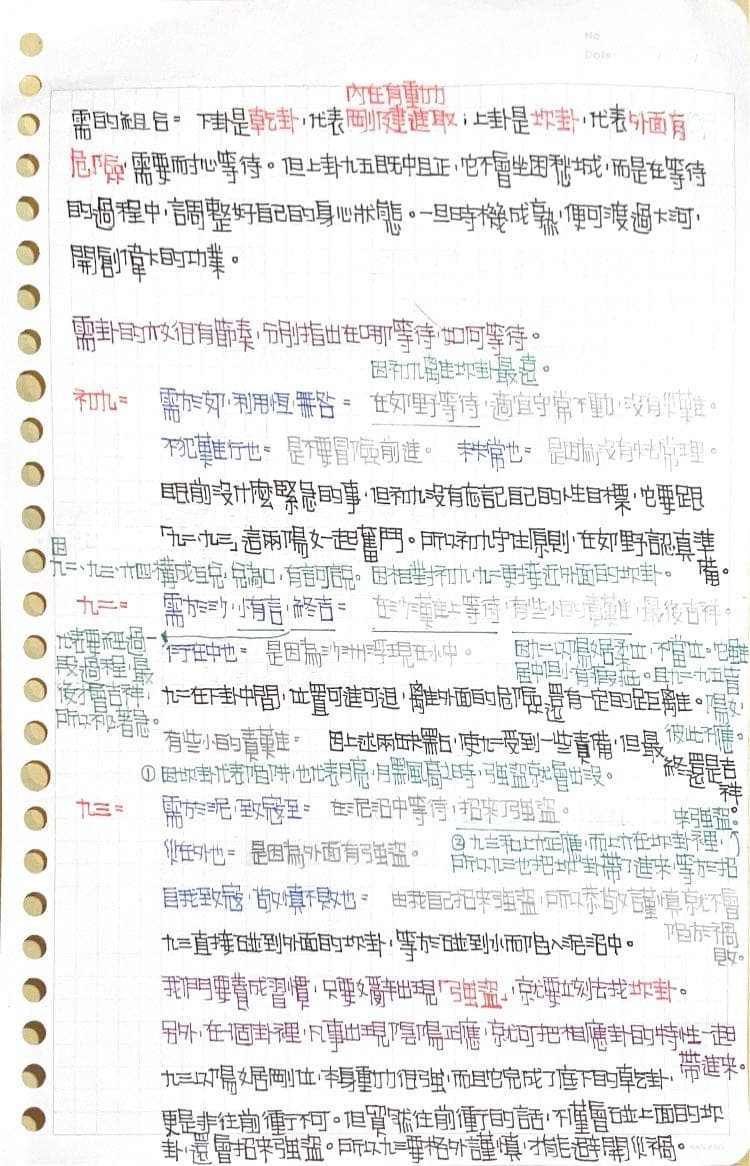 No
Date
內在有動力
需的組合＝下卦是乾卦，代表剛健進取；上卦是坎卦，代表外面有
危險，需要耐心等待。但上卦九五既中且正，它不會坐困愁城，而是在等待
的過程中，調整好自己的身心狀態。一旦時機成熟，便可渡過大河，
開創偉大的功業。
需卦的六爻很有節奏，分別指出在哪等待，如何等待。
因初九離坎卦最遠。
初九＝ 需於郊，利用恆，無咎＝ 在郊野等待，適宜守常不動，沒有災難。
不犯難行也＝ 是不要冒險前進。 未失常也＝ 是因為沒有失去常理。
眼前沒什麼緊急的事，但初九沒有忘記自己的目標，它要跟
「九二、九三」這兩陽爻一起奮鬥。所以初九守住原則，在郊野認真準
備。
因
九二、九三、六四構成互兌，兌為口，有言可說。因相對初九，九二更接近外面的坎卦。
九二＝ 需於沙，小有言，終吉＝ 在沙灘上等待，有些小的責難，最後吉祥。
代表要經過一
段過程，最
後才會吉祥，
所以不必著急。
衍在中也＝ 是因為沙洲浮現在水中。
因九二以陽爻居柔位，不當位。它雖
居中但有瑕疵。且九二九五皆
陽爻，
彼此不應。
九二在下卦中間，位置可進可退，離外面的危險還有一定的距離。
有些小的責難＝ 因上述兩缺點，使九二受到一些責備，但最
終還是吉
祥。
①因坎卦代表陷阱，也代表月亮，月黑風高之時，強盜就會出沒。
九三＝ 需於泥，致寇至＝ 在泥沼中等待，招來了強盜。
災在外也＝ 是因為外面有強盜。
②九三和上六正應，而上六在坎卦裡，
所以九三也把坎卦帶了進來，等於招
來強盜。
自我致寇，敬慎不敗也＝ 由我自己招來強盜，所以恭敬謹慎就不會
陷於禍
敗。
九三直接碰到外面的坎卦，等於碰到水而陷入泥沼中。
我們要養成習慣，只要爻辭出現「強盜」，就要立刻去找坎卦。
另外，在一個卦裡，凡事出現陰陽正應，就可把相應卦的特性一起
帶進來。
九三以陽爻居剛位，本身動力很強，而且它完成了底下的乾卦，
更是非往前衝不可。但貿然往前衝的話，不僅會碰上面的坎
卦，還會招來強盜。所以九三要格外謹慎，才能避開災禍。